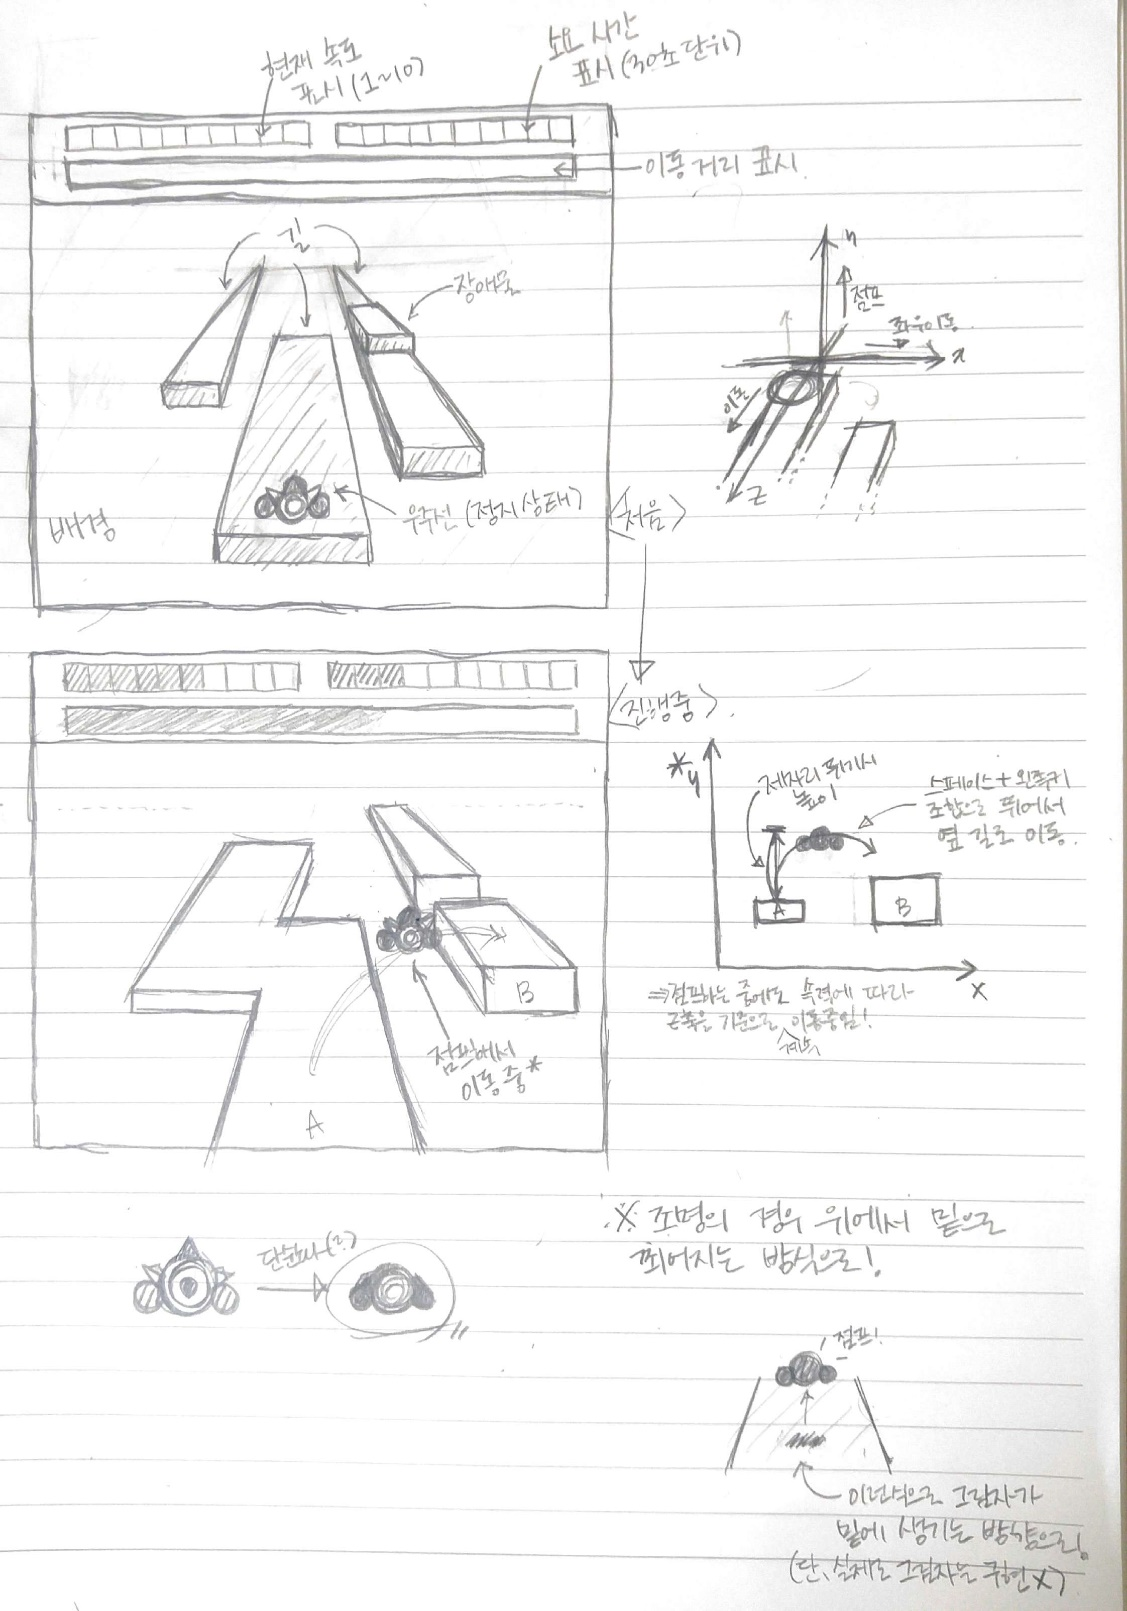 현재 속도
표시(1~10)
소요 시간
표시(30초 단위)
이동 거리 표시.
길
장애물
우주선 (정지 상태)
배경
<처음>
y
점프
좌우이동
x
이동
z
<진행중>.
B
점프해서
이동 중*
A
*y
제자리 뛰기시
높이
스페이스+왼쪽키
조합으로 뛰어서
옆 길로 이동.
A
B
x
⇒점프하는 중에도 속력에 따라
z축을 기준으로 계속 이동중임!
※ 조명의 경우 위에서 밑으로
쬐어지는 방식으로!
단순화(?)
점프!
이런식으로 그림자가
밑에 생기는 방향으로!
(단, 실제로 그림자는 구현X)